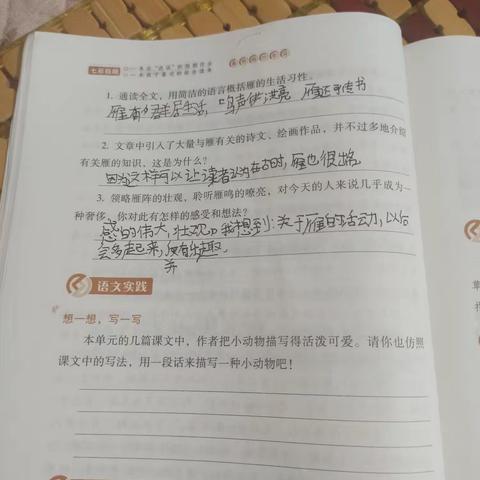 1. 通读全文，用简洁的语言概括雁的生活习性。
雁有群居生活，鸟声似洪亮 雁还可传书
2. 文章中引入了大量与雁有关的诗文、绘画作品，并不过多地介绍
有关雁的知识，这是为什么？
因为这样可以让读者认为在古时，雁也很出名
3. 领略雁阵的壮观，聆听雁鸣的嘹亮，对今天的人来说几乎成为一
种奢侈。你对此有怎样的感受和想法？
感的伟大，壮观。我想到：关于雁的活动，以后
会多起来，没有乐趣。
语文实践
想一想，写一写
本单元的几篇课文中，作者把小动物描写得活泼可爱。请你也仿照
课文中的写法，用一段话来描写一种小动物吧！